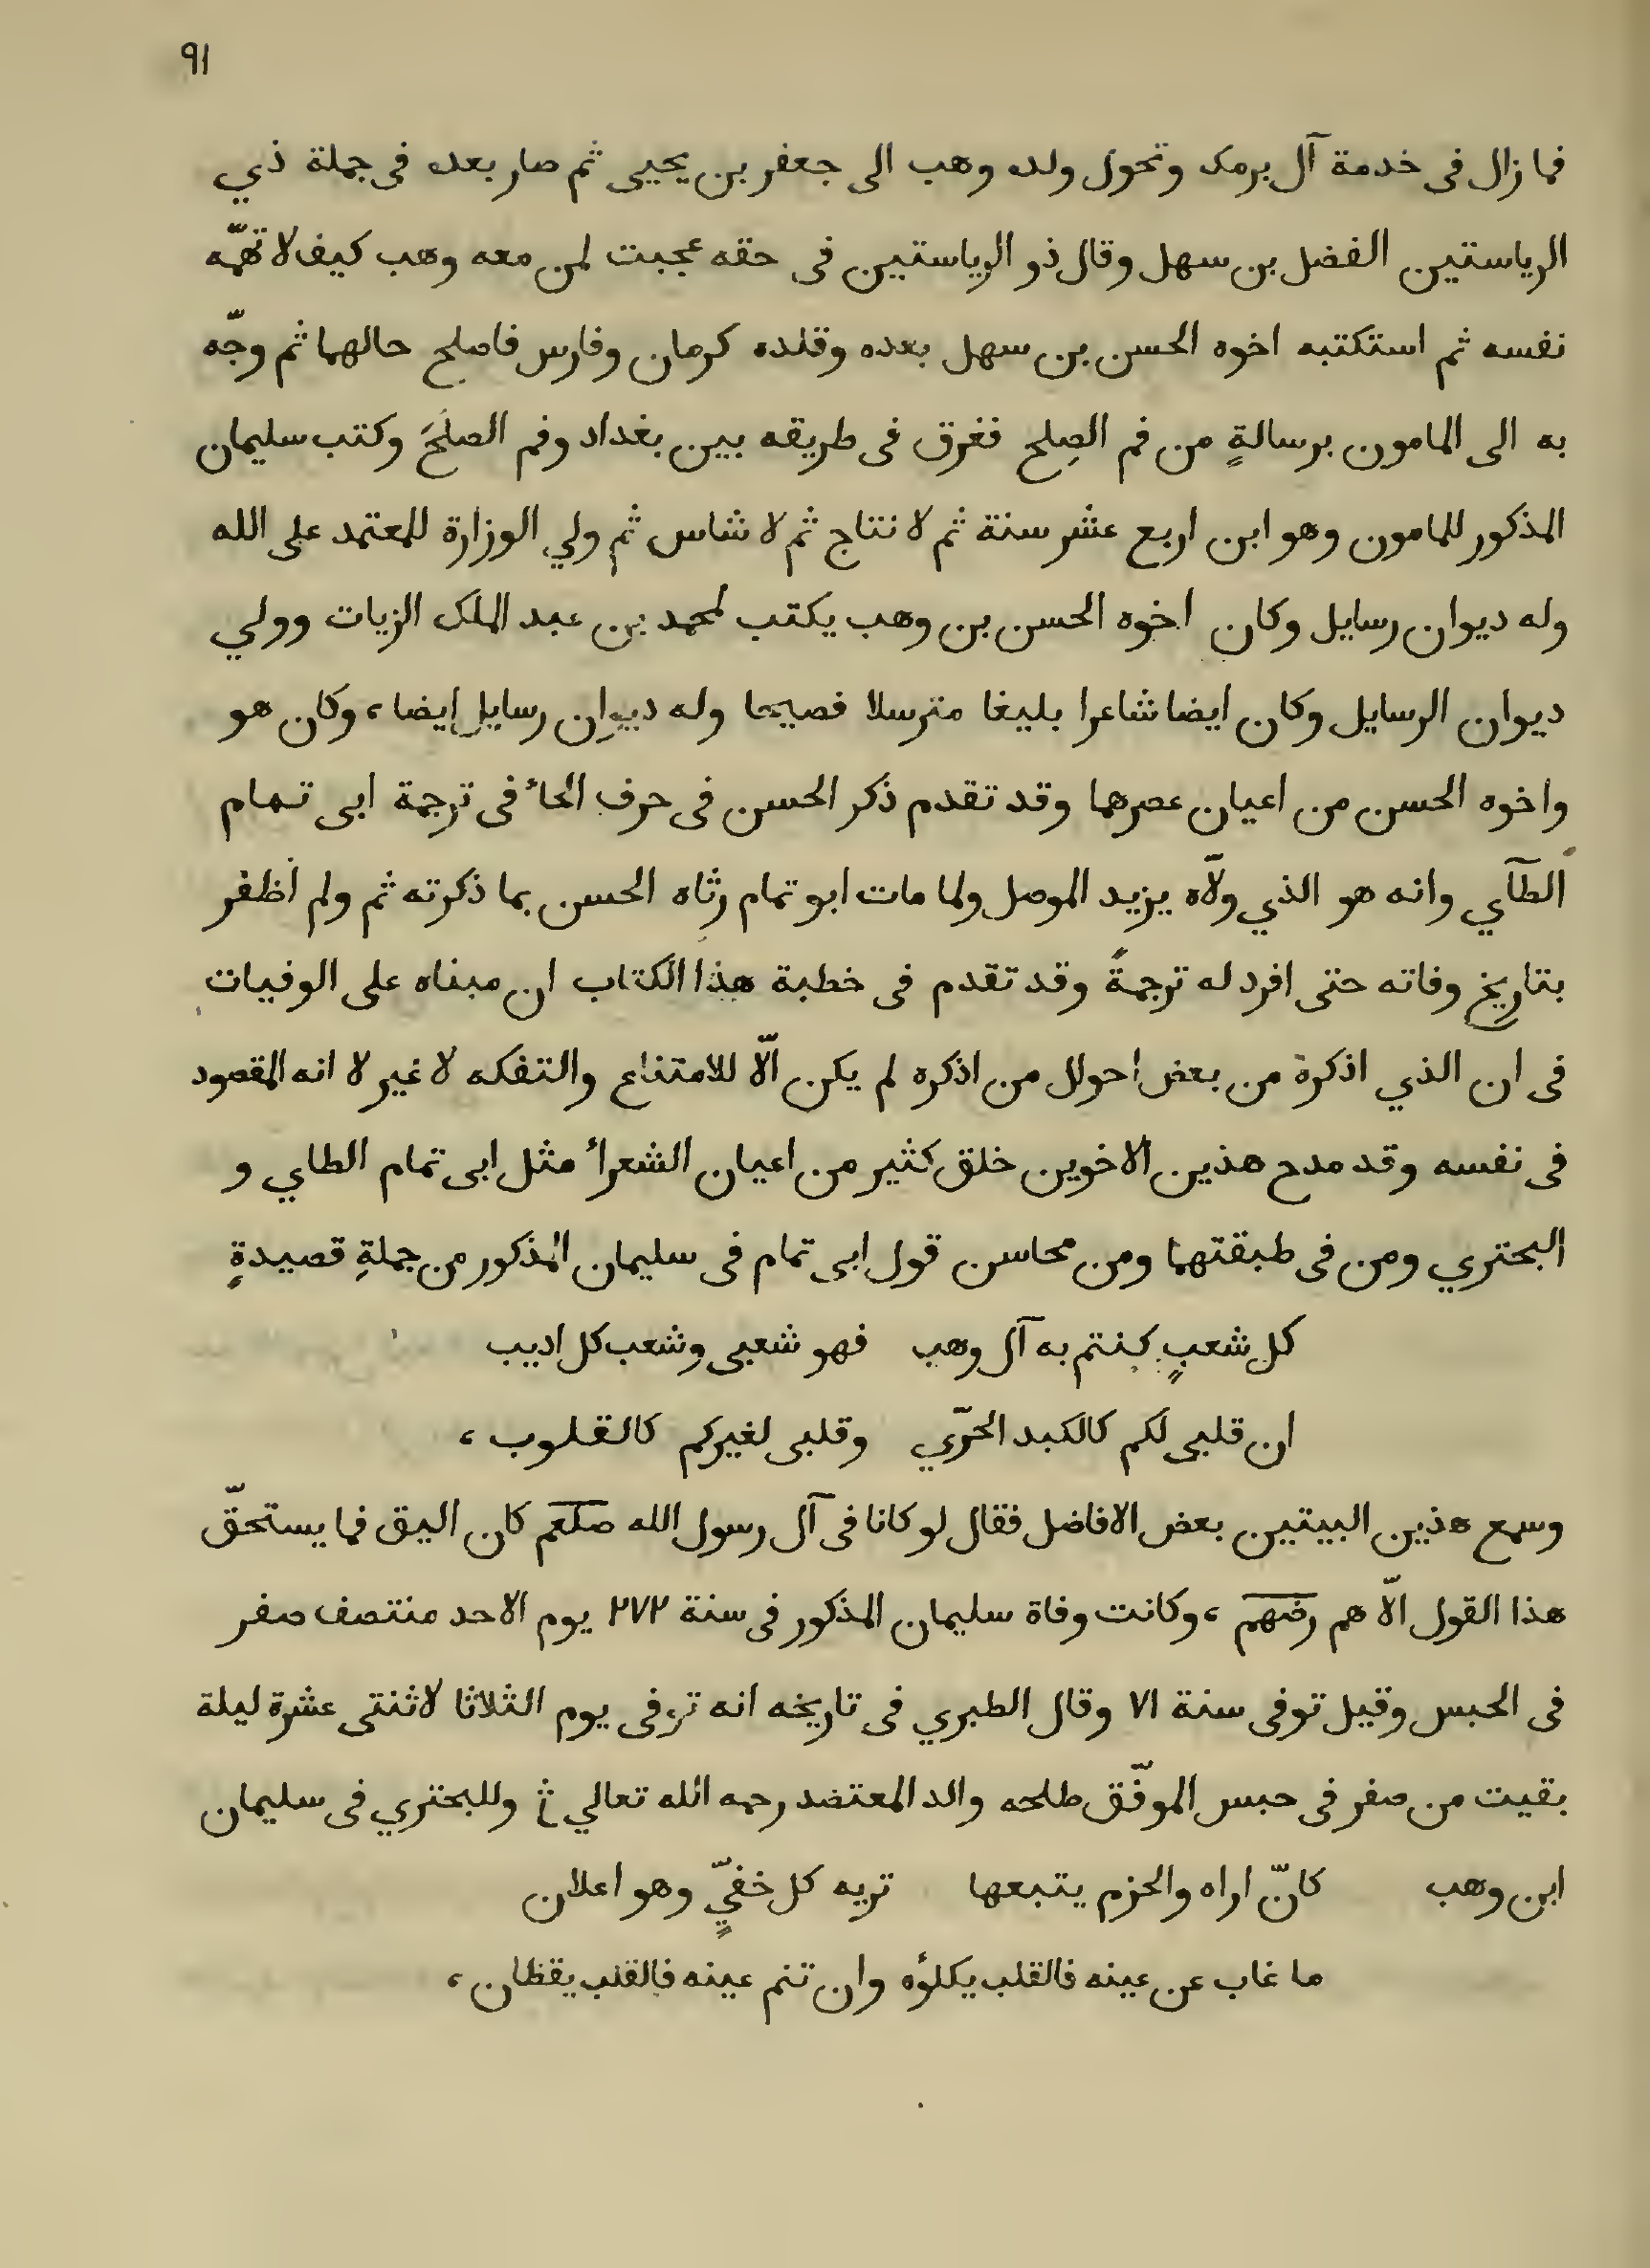 ٩١
فما زال فى خدمة آل برمك وتحول ولده وهب الى جعفر بن يحيى ثم صار بعده فى جملة ذي
الرياستين الفضل بن سهل وقال ذو الرياستين فى حقه عجبت لمن معه وهب كيف لا تهمّه
نفسه ثم استكتبه اخوه الحسن بن سهل بعده وقلده كرمان وفارس فاصلح حالهما ثم وجّه
به الى المامون برسالةٍ من فم الصِلح فغرق فى طريقه بين بغداد وفم الصلح وكتب سليمان
المذكور للمامون وهو ابن اربع عشر سنة ثم لا نتاج ثم لا شاس ثم ولي الوزارة للمعتمد على الله
وله ديوان رسايل وكان اخوه الحسن بن وهب يكتب لمحمد بن عبد الملك الزيات وولي
ديوان الرسايل وكان ايضا شاعرا بليغا مترسلا فصيحا وله ديوان رسايل ايضا، وكان هو
واخوه الحسن من اعيان عصرهما وقد تقدم ذكر الحسن فى حرف الحاء فى ترجمة ابى تمام
الطآي وانه هو الذي ولّاه يزيد الموصل ولما مات ابو تمام رثاه الحسن بما ذكرته ثم ولم اظفر
بتاريخ وفاته حتى افرد له ترجمةً وقد تقدم فى خطبة هذا الكتاب ان مبناه على الوفيات
فى ان الذي اذكرة من بعض احوال من اذكره لم يكن الّا للامتناع والتفكه لا غير لا انه المقصود
فى نفسه وقد مدح هذين الاخوين خلق كثير من اعيان الشعراء مثل ابى تمام الطاي و
البحتري ومن فى طبقتهما ومن محاسن قول ابى تمام فى سليمان المذكور من جملةِ قصيدةٍ
كل شعبٍ كنتم به آل وهب فهو شعبى وشعب كل اديب
ان قلبى لكم كالكبد الحرّي وقلبى لغيركم كالقلوب،
وسمع هذين البيتين بعض الافاضل فقال لو كانا فى آل رسول الله صلعم كان اليق فما يستحقّ
هذا القول الّا هم رضهم، وكانت وفاة سليمان المذكور فى سنة ٢٧٢ يوم الاحد منتصف صفر
فى الحبس وقيل توفى سنة ٧١ وقال الطبري فى تاريخه انه توفى يوم الثلاثا لاثنتى عشرة ليلة
بقيت من صفر فى حبس الموفّق طلحه والد المعتضد رحمه الله تعالي ثم وللبحتري فى سليمان
ابن وهب كانّ اراه والحزم يتبعها تريه كل خفيٍّ وهو اعلان
ما غاب عن عينه فالقلب يكلؤه وان تنم عينه فالقلب يقظان،